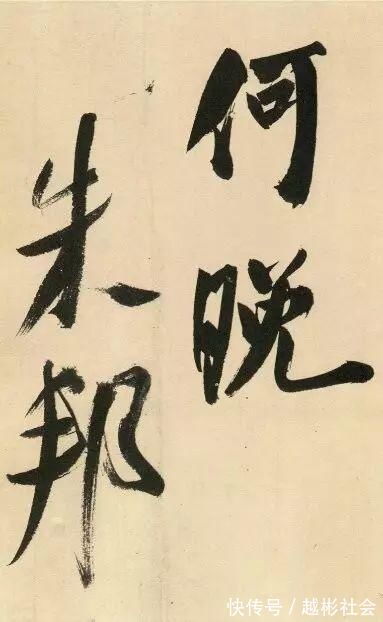 何晚
朱邦
快传号/越彬社会